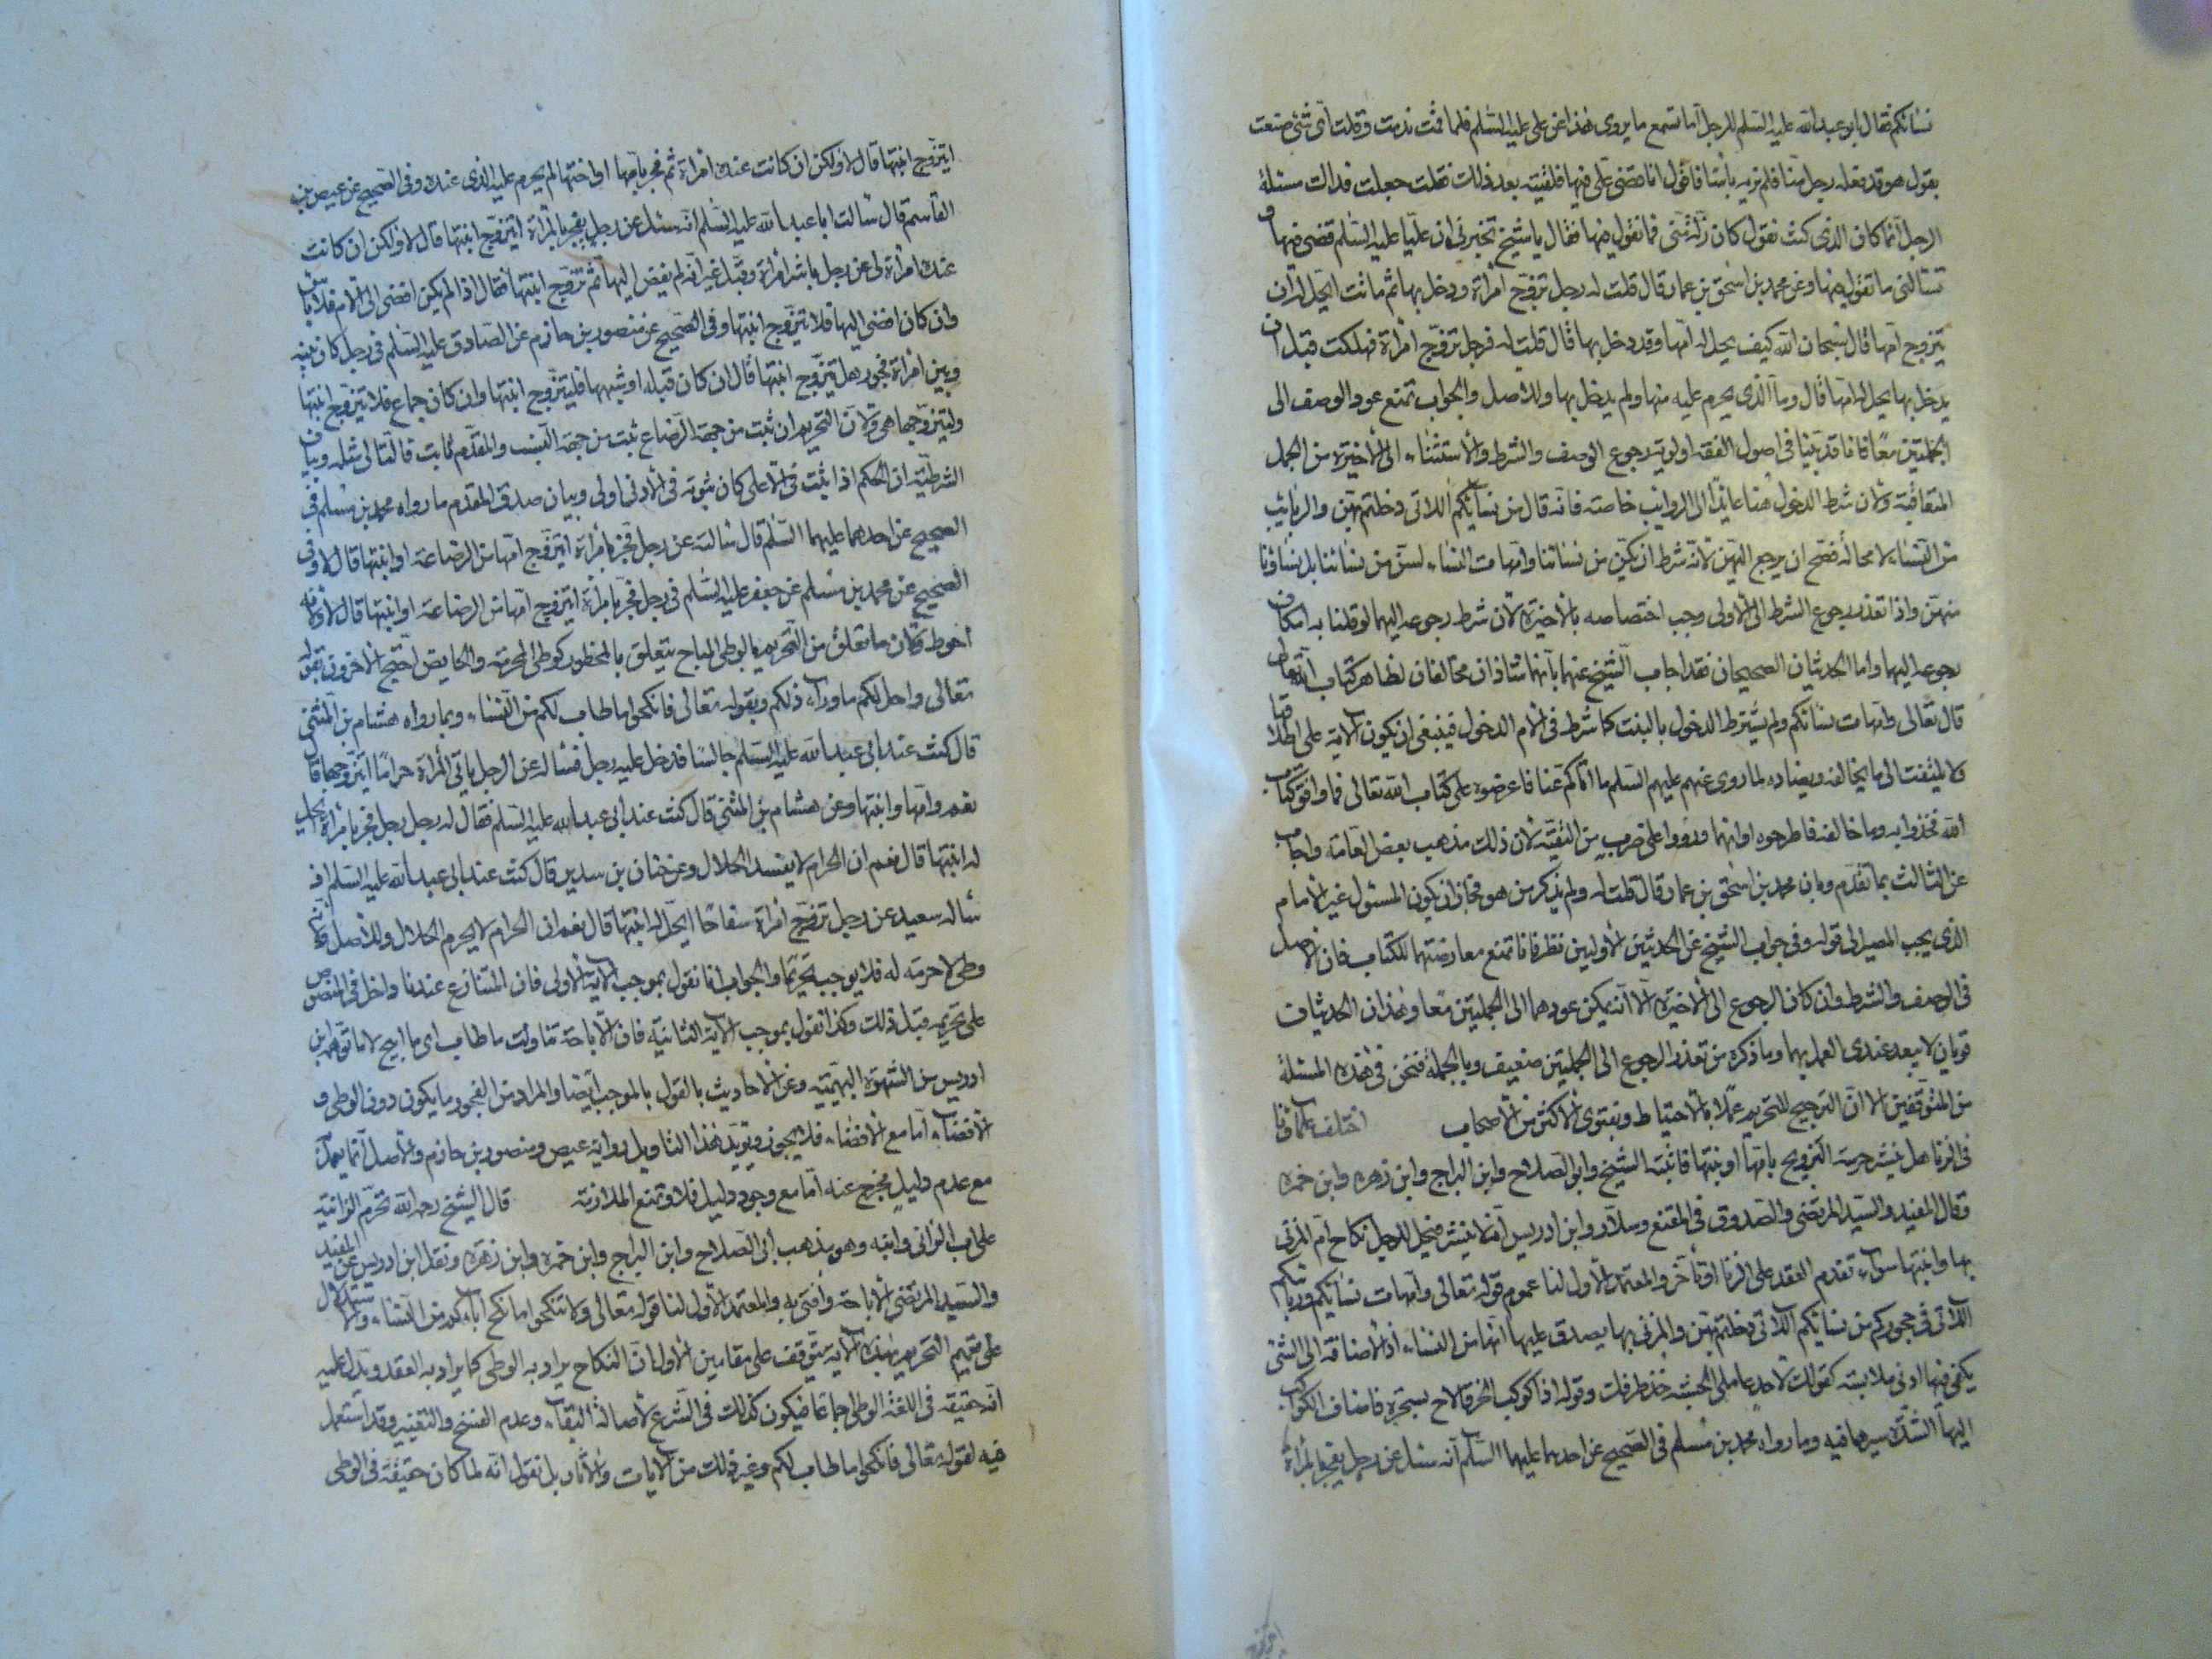 نسائكم فقال ابو عبد الله عليه السلم للرجل أما تسمع ما يروى هذا عن على عليه السلم فلما قمت ندمت وقلت اى شئ صنعت
يقول هو قد فعله رجل منا فلم نر به بأسا فاقول انا قضى على فيها فلقيته بعد ذلك فقلت جعلت فداك مسئلة
الرجل انما كان الذى كنت تقول كان زلة منى فما تقول فيها فقال يا شيخ تخبرنى ان عليا عليه السلم قضى فيها و
تسألنى ما تقول فيها وعن محمد بن اسحق بن عمار قال قلت له رجل تزوج امرأة ودخل بها ثم ماتت ايحل له ان
يتزوج امها قال سبحان الله كيف يحل له امها وقد دخل بها قال قلت له فرجل تزوج امرأة فهلكت قبل ان
يدخل بها يحل له امها قال وما الذى يحرم عليه منها ولم يدخل بها وللاصل والجواب نمنع عود الوصف الى
الجملتين معا فانا قد بينا فى اصول الفقه اولوية رجوع الوصف والشرط والاستثناء الى الاخيرة من الجمل
المتعاقبة ولان شرط الدخول هنا عايد الى الربايب خاصة فانه قال من نسائكم اللاتى دخلتم بهن والربائب
من النساء لا محالة فصح ان يرجع اليهن لانه شرط ان يكن من نسائنا وامهات النساء لسن من نسائنا بل نساؤنا
منهن واذا تعذر رجوع الشرط الى الاولى وجب اختصاصه بالاخيرة لان شرط رجوعه اليهما لو قلنا به امكان
رجوعه اليهما واما الحديثان الصحيحان فقد اجاب الشيخ عنهما بانهما شاذان مخالفان لظاهر كتاب الله تعالى
قال تعالى وامهات نسائكم ولم يشترط الدخول بالبنت كما شرط فى الام الدخول فينبغى ان يكون الاية على اطلاقها
ولا يلتفت الى ما يخالفه ويضاده لما روى عنهم عليهم السلم ما اتاكم عنا فاعرضوه على كتاب الله تعالى فما وافق كتاب
الله فخذوا به وما خالفه فاطرحوه او انهما وردوا على ضرب من التقية لان ذلك مذهب بعض العامة واجاب
عن الثالث بما تقدم وبان محمد بن اسحق بن عمار قال قلت له ولم يذكر من هو فجاز ان يكون المسئول غير الامام
الذى يجب المصير الى قوله وفى جواب الشيخ عن الحديثين الاولين نظر فانا نمنع معارضتهما للكتاب فان الاصل
فى الوصف والشرط وان كان الرجوع الى الاخيرة الا انه يمكن عودهما الى الجملتين معا وهذان الحديثان
قويان لا يبعد عندى العمل بهما وما ذكره من تعذر الرجوع الى الجملتين ضعيف وبالجملة فنحن فى هذه المسئلة
من المتوقفين الا ان الترجيح للتحريم عملا بالاحتياط وبفتوى الاكثر من الاصحاب اختلف علماؤنا
فى الزنا هل ينشر حرمة التزويج بامها او بنتها فاثبته الشيخ وابو الصلاح وابن البراج وابن زهره وابن حمزه
وقال المفيد والسيد المرتضى والصدوق فى المقنع وسلار وابن ادريس انه لا ينشر فيحل للرجل نكاح ام المزنى
بها وابنتها سواء تقدم العقد على الزنا او تأخر والمعتمد الاول لنا عموم قوله تعالى وامهات نسائكم وربائبكم
اللاتى فى حجوركم من نسائكم اللاتى دخلتم بهن والمزنى بها يصدق عليها انها من النساء اذ الاضافة الى الشئ
يكفى فيها ادنى ملابسة كقولك لاحد حاملى الخشبة خذ طرفك وقوله اذا كوكب الخرقا لاح بسحرة فاضاف الكوكب
اليها لشدة سيرها فيه وما رواه محمد بن مسلم فى الصحيح عن احدهما عليهما السلم انه سئل عن رجل يفجر بامرأة
ايتزوج ابنتها قال لا ولكن ان كانت عنده امرأة ثم فجر بامها او اختها لم يحرم عليه الذى عنده وفى الصحيح عن عيص بن
القاسم قال سألت ابا عبد الله عليه السلم انه سئل عن رجل يفجر بامرأة ايتزوج ابنتها قال لا ولكن ان كانت
عنده امرأة لى عن رجل باشر امرأة وقبل غير انه لم يفض اليها ثم تزوج ابنتها فقال اذا لم يكن افضى الى الام فلا بأس
وان كان افضى اليها فلا يتزوج ابنتها وفى الصحيح عن منصور بن حازم عن الصادق عليه السلم فى رجل كان بينه
وبين امرأة فجور هل يتزوج ابنتها قال ان كان قبلة او شبهها فليتزوج ابنتها وان كان جماع فلا يتزوج ابنتها
وليتزوجها هى ولان التحريم ان ثبت من جهة الرضاع ثبت من جهة النسب والمقدم ثابت فالتالى مثله وبيان
الشرطية ان الحكم اذا ثبت فى الاعلى كان ثبوته فى الادنى اولى وبيان صدق المقدم ما رواه محمد بن مسلم فى
الصحيح عن احدهما عليهما السلم قال سألته عن رجل فجر بامرأة ايتزوج امها من الرضاعة او ابنتها قال لا وفى
الصحيح عن محمد بن مسلم عن جعفر عليه السلم فى رجل فجر بامرأة ايتزوج امها من الرضاعة او ابنتها قال لا ولانه
احوط ولان ما تعلق من التحريم بالوطى المباح يتعلق بالمحظور كوطى المحرمة والحايض احتج الاخرون بقوله
تعالى واحل لكم ماوراء ذلكم وبقوله تعالى فانكحوا ما طاب لكم من النساء وبما رواه هشام بن المثنى
قال كنت عند ابى عبد الله عليه السلم جالسا فدخل عليه رجل فسأله عن الرجل ياتى المرأة حراما ايتزوجها قال
نعم وامها وابنتها وعن هشام بن المثنى قال كنت عند ابى عبد الله عليه السلم فقال له رجل رجل فجر بامرأة ايحل
له ابنتها قال نعم ان الحرام لا يفسد الحلال وعن حنان بن سدير قال كنت عند ابى عبد الله عليه السلم اذ
سأله سعيد عن رجل تزوج امرأة سفاحا ايحل له ابنتها قال نعم ان الحرام لا يحرم الحلال وللاصل ولانه
وطى لا حرمة له فلا يوجب تحريما والجواب انا نقول بموجب الاية الاولى فان المتنازع عندنا داخل فى المنصوص
على تحريمه قبل ذلك وكذا نقول بموجب الاية الثانية فان الاباحة تناولت ما طاب اى ما ابيح لا ما توهمه ابن
ادريس من الشهوة البهيمية وعن الاحاديث بالقول بالموجب ايضا والمراد من الفجور ما يكون دون الوطى و
الافضاء اما مع الافضاء فلا يجوز ويؤيد هذا التاويل رواية عيص ومنصور بن حازم والاصل انما يعمل
مع عدم دليل مخرج عنه اما مع وجود دليل فلا ونمنع الملازمة قال الشيخ رحمه الله تحرم الزانية
على اب الزانى وابنه وهو مذهب ابى الصلاح وابن البراج وابن حمزه وابن زهره ونقل ابن ادريس عن المفيد
والسيد المرتضى الاباحة وافتى به والمعتمد الاول لنا قوله تعالى ولا تنكحوا ما نكح اباؤكم من النساء والاستدلال
على التحريم بهذه الاية يتوقف على مقامين الاول ان النكاح يراد به الوطى كما يراد به العقد ويدل عليه
انه حقيقة فى اللغة الوطى اجماعا فيكون كذلك فى الشرع لأصالة البقاء وعدم النسخ والتغيير وقد استعمل
فيه لقوله تعالى فانكحوا ما طاب لكم وغير ذلك من الايات والاثار بل نقول انه لما كان حقيقة فى الوطى